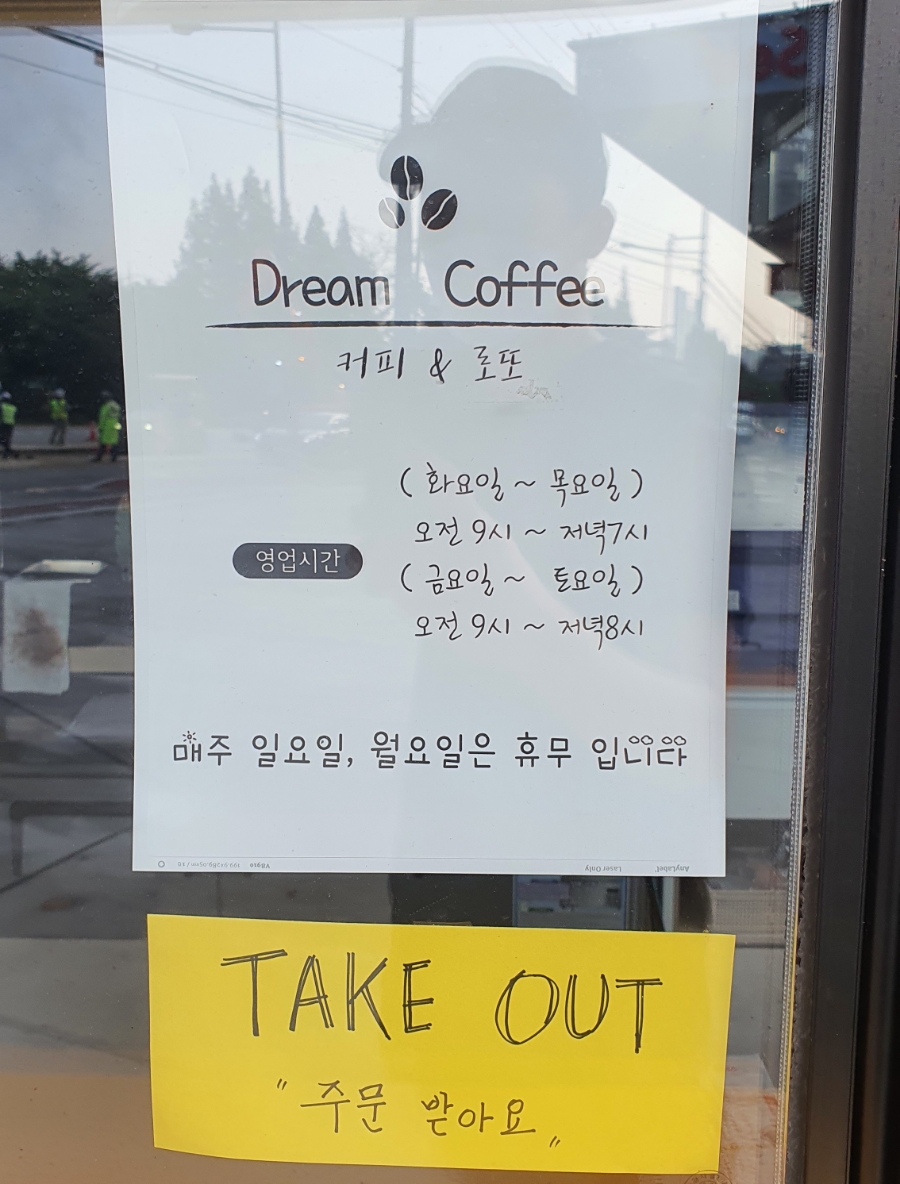 Dream Coffee
커피 & 로또
( 화요일 ~ 목요일 )
오전 9시 ~ 저녁7시
영업시간
( 금요일 ~ 토요일 )
오전 9시 ~ 저녁8시
매주 일요일, 월요일은 휴무 입니다
AnyLabel Laser Only
TAKE OUT
" 주문 받아요 "